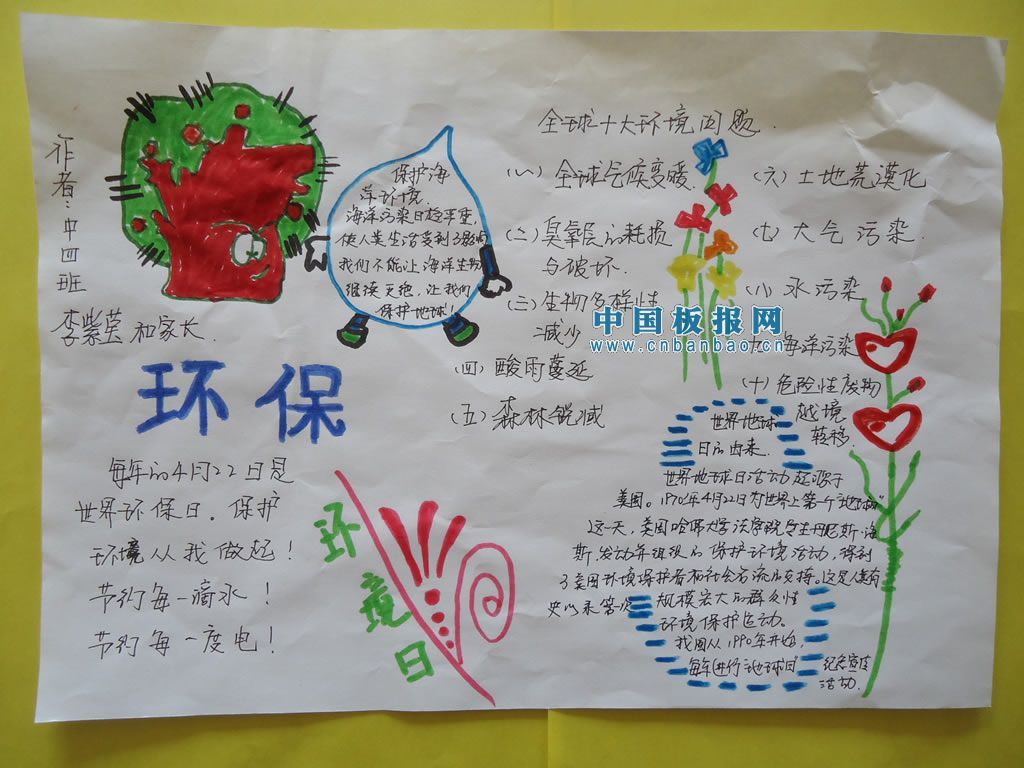 作者:中四班
李紫莹和家长.
保护海
洋环境.
海洋污染日趋严重
使人类生活受到了影响
我们不能让海洋生物
继续灭绝,让我们
保护地球!
环保
每年的4月22日是
世界环保日.保护
环境从我做起!
节约每一滴水!
节约每一度电!
环境日
全球十大环境问题.
(一)全球气候变暖.
(二)臭氧层的耗损
与破坏.
(三)生物多样性
减少
(四)酸雨蔓延
(五)森林锐减
(六)土地荒漠化
(七)大气污染.
(八)水污染
海洋污染
(十)危险性废物
越境
转移.
中国板报网
www.cnbanbao.cn
世界地球
日的由来.
世界地球日活动起源于
美国。1970年4月22日为世界上第一个"地球日"
这一天,美国哈佛大学法学院学生丹尼斯·海
斯,发动年组织的保护环境活动,得到
了美国环境保护者和社会名流的支持。这是人类有
史以来第一次
规模宏大的群众性
环境保护运动.
我国从1990年开始,
每年进行地球日
纪念宣传
活动.